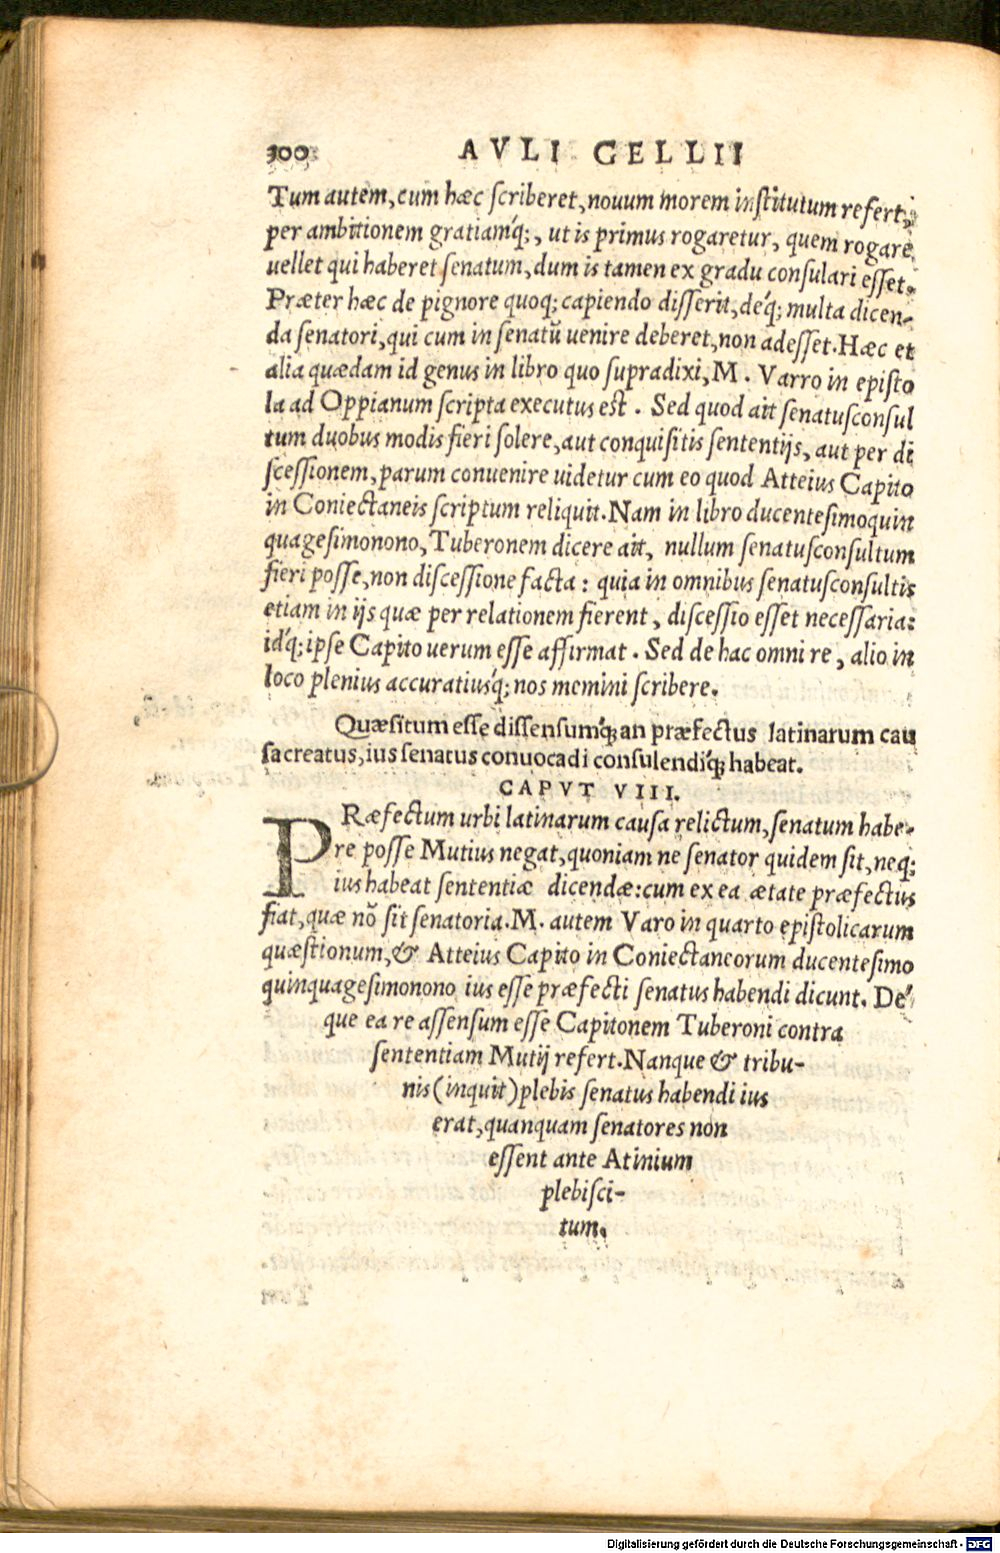 300 AVLI GELLII
Tum autem, cum hæc ſcriberet, nouum morem inſtitutum refert,
per ambitionem gratiamq́;, ut is primus rogaretur, quem rogare
uellet qui haberet ſenatum, dum is tamen ex gradu conſulari eſſet.
Præter hæc de pignore quoq; capiendo diſſerit, deq́; multa dicen-
da ſenatori, qui cum in ſenatũ uenire deberet, non adeſſet. Hæc et
alia quædam id genus in libro quo ſupradixi, M. Varro in epiſto
la ad Oppianum ſcripta executus eſt. Sed quod ait ſenatuſconſul
tum duobus modis fieri ſolere, aut conquiſitis ſententijs, aut per di
ſceſſionem, parum conuenire uidetur cum eo quod Atteius Capito
in Coniectaneis ſcriptum reliquit. Nam in libro ducenteſimoquin
quageſimonono, Tuberonem dicere ait, nullum ſenatuſconſultum
fieri poſſe, non diſceſſione facta: quia in omnibus ſenatuſconſultis
etiam in ijs quæ per relationem fierent, diſceſſio eſſet neceſſaria:
idq́; ipſe Capito uerum eſſe affirmat. Sed de hac omni re, alio in
loco plenius accuratiusq́; nos memini ſcribere.
Quæſitum eſſe diſſenſumq́; an præfectus latinarum cau
ſa creatus, ius ſenatus conuocadi conſulendiq́; habeat.
CAPVT VIII.
PRæfectum urbi latinarum cauſa relictum, ſenatum habe-
re poſſe Mutius negat, quoniam ne ſenator quidem ſit, neq;
ius habeat ſententiæ dicendæ: cum ex ea ætate præfectus
fiat, quæ nõ ſit ſenatoria. M. autem Varo in quarto epiſtolicarum
quæſtionum, & Atteius Capito in Coniectaneorum ducenteſimo
quinquageſimonono ius eſſe præfecti ſenatus habendi dicunt. De
que ea re aſſenſum eſſe Capitonem Tuberoni contra
ſententiam Mutij refert. Nanque & tribu-
nis (inquit) plebis ſenatus habendi ius
erat, quanquam ſenatores non
eſſent ante Atinium
plebiſci-
tum.
Digitalisierung gefördert durch die Deutsche Forschungsgemeinschaft - DFG